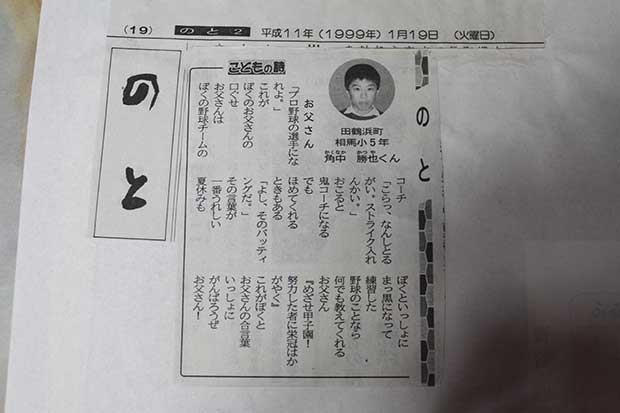 (19)
のと2
平成11年(1999年)1月19日 (火曜日)
のと
のと
こどもの詩
田鶴浜町
相馬小5年
角中 勝也くん
かくなか かつや
お父さん
「プロ野球の選手にな
れよ。」
これが
ぼくのお父さんの
口ぐせ
お父さんは
ぼくの野球チームの
コーチ
「こらっ、なんしとる
がい。ストライク入れ
んかい。」
おこると
鬼コーチになる
でも
ほめてくれる
ときもある
「よし、そのバッティ
ングだ。」
その言葉が
一番うれしい
夏休みも
ぼくといっしょに
まっ黒になって
練習した
野球のことなら
何でも教えてくれる
お父さん
『めざせ甲子園!
努力した者に栄冠はか
がやく』
これがぼくと
お父さんの合言葉
いっしょに
がんばろうぜ
お父さん!